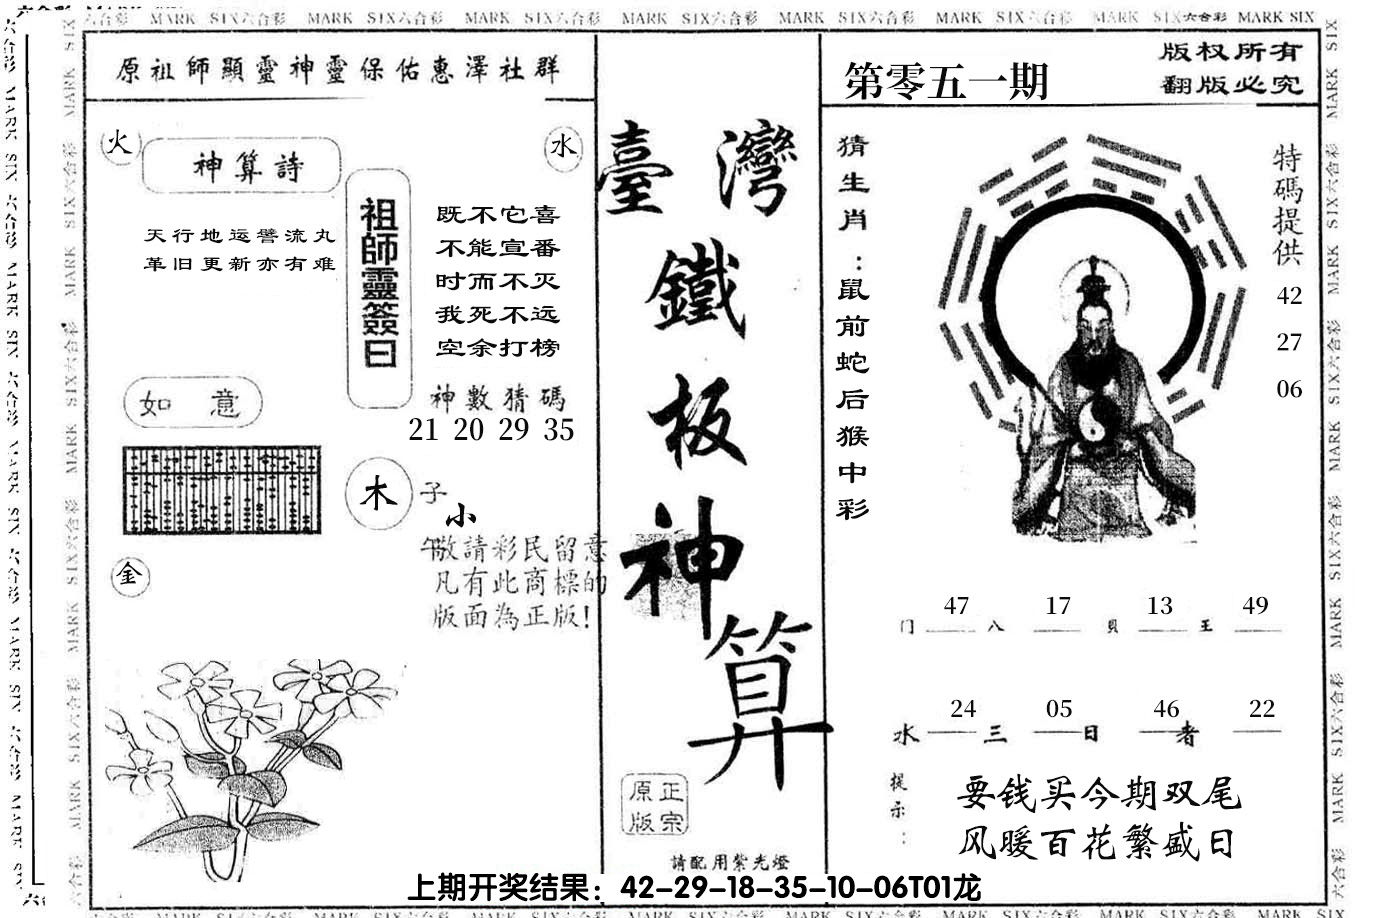 MARK SIX六合彩 MARK SIX六合彩 MARK SIX六合彩 MARK SIX六合彩 MARK SIX六合彩 MARK SIX六合彩 MARK SIX六合彩 MARK SIX
原祖師顯靈神靈保佑惠澤社群
火
神算詩
水
天行地运譬流丸
革旧更新亦有难
祖師靈簽曰
既不它喜
不能宣番
时而不灭
我死不远
空余打榜
如 意
神數猜碼
21 20 29 35
木
子
小
午
敬請彩民留意
凡有此商標的
版面為正版!
金
臺灣
鐵
板
神
算
原正
版宗
請配用紫光燈
第零五一期
版权所有
翻版必究
猜生肖:鼠前蛇后猴中彩
特碼提供
42
27
06
47 17 13 49
门 八 貝 王
24 05 46 22
水 三 日 者
提示:
要钱买今期双尾
风暖百花繁盛日
上期开奖结果：42-29-18-35-10-06T01龙